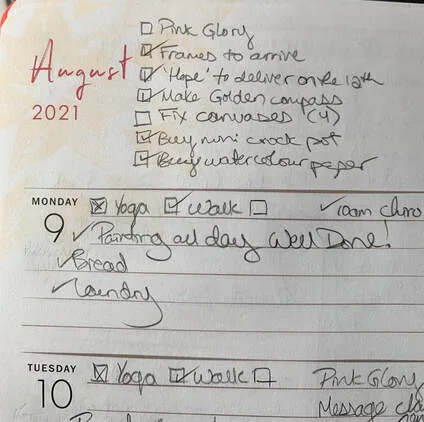 Pink Glory
Frames to arrive
'Hope' to deliver on the 12th
Make Golden compass
Fix canvases (4)
Buy mini crock pot
Buy watercolour paper
August
2021
MONDAY
9
Yoga Walk
10am chiro
Painting all day Well Done!
Bread
Laundry
TUESDAY
10
Yoga Walk
Pink Glory
Message